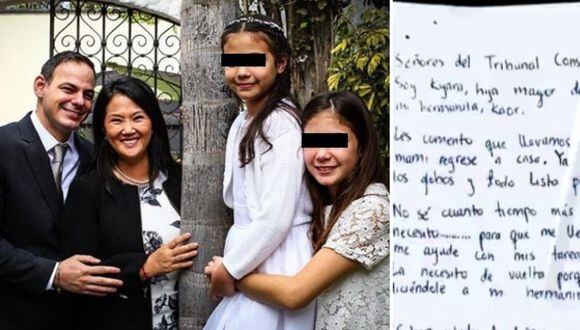 Señores del Tribunal Cons
Soy Kyara, hija mayor de
mi hermanita, Kaor.
Les comento que llevamos
mami regrese a casa. Ya
los globos y todo listo p
No sé cuanto tiempo más
necesito.......... para que me lle
me ayude con mis tarea
La necesito de vuelta por
diciéndole a mi hermanit